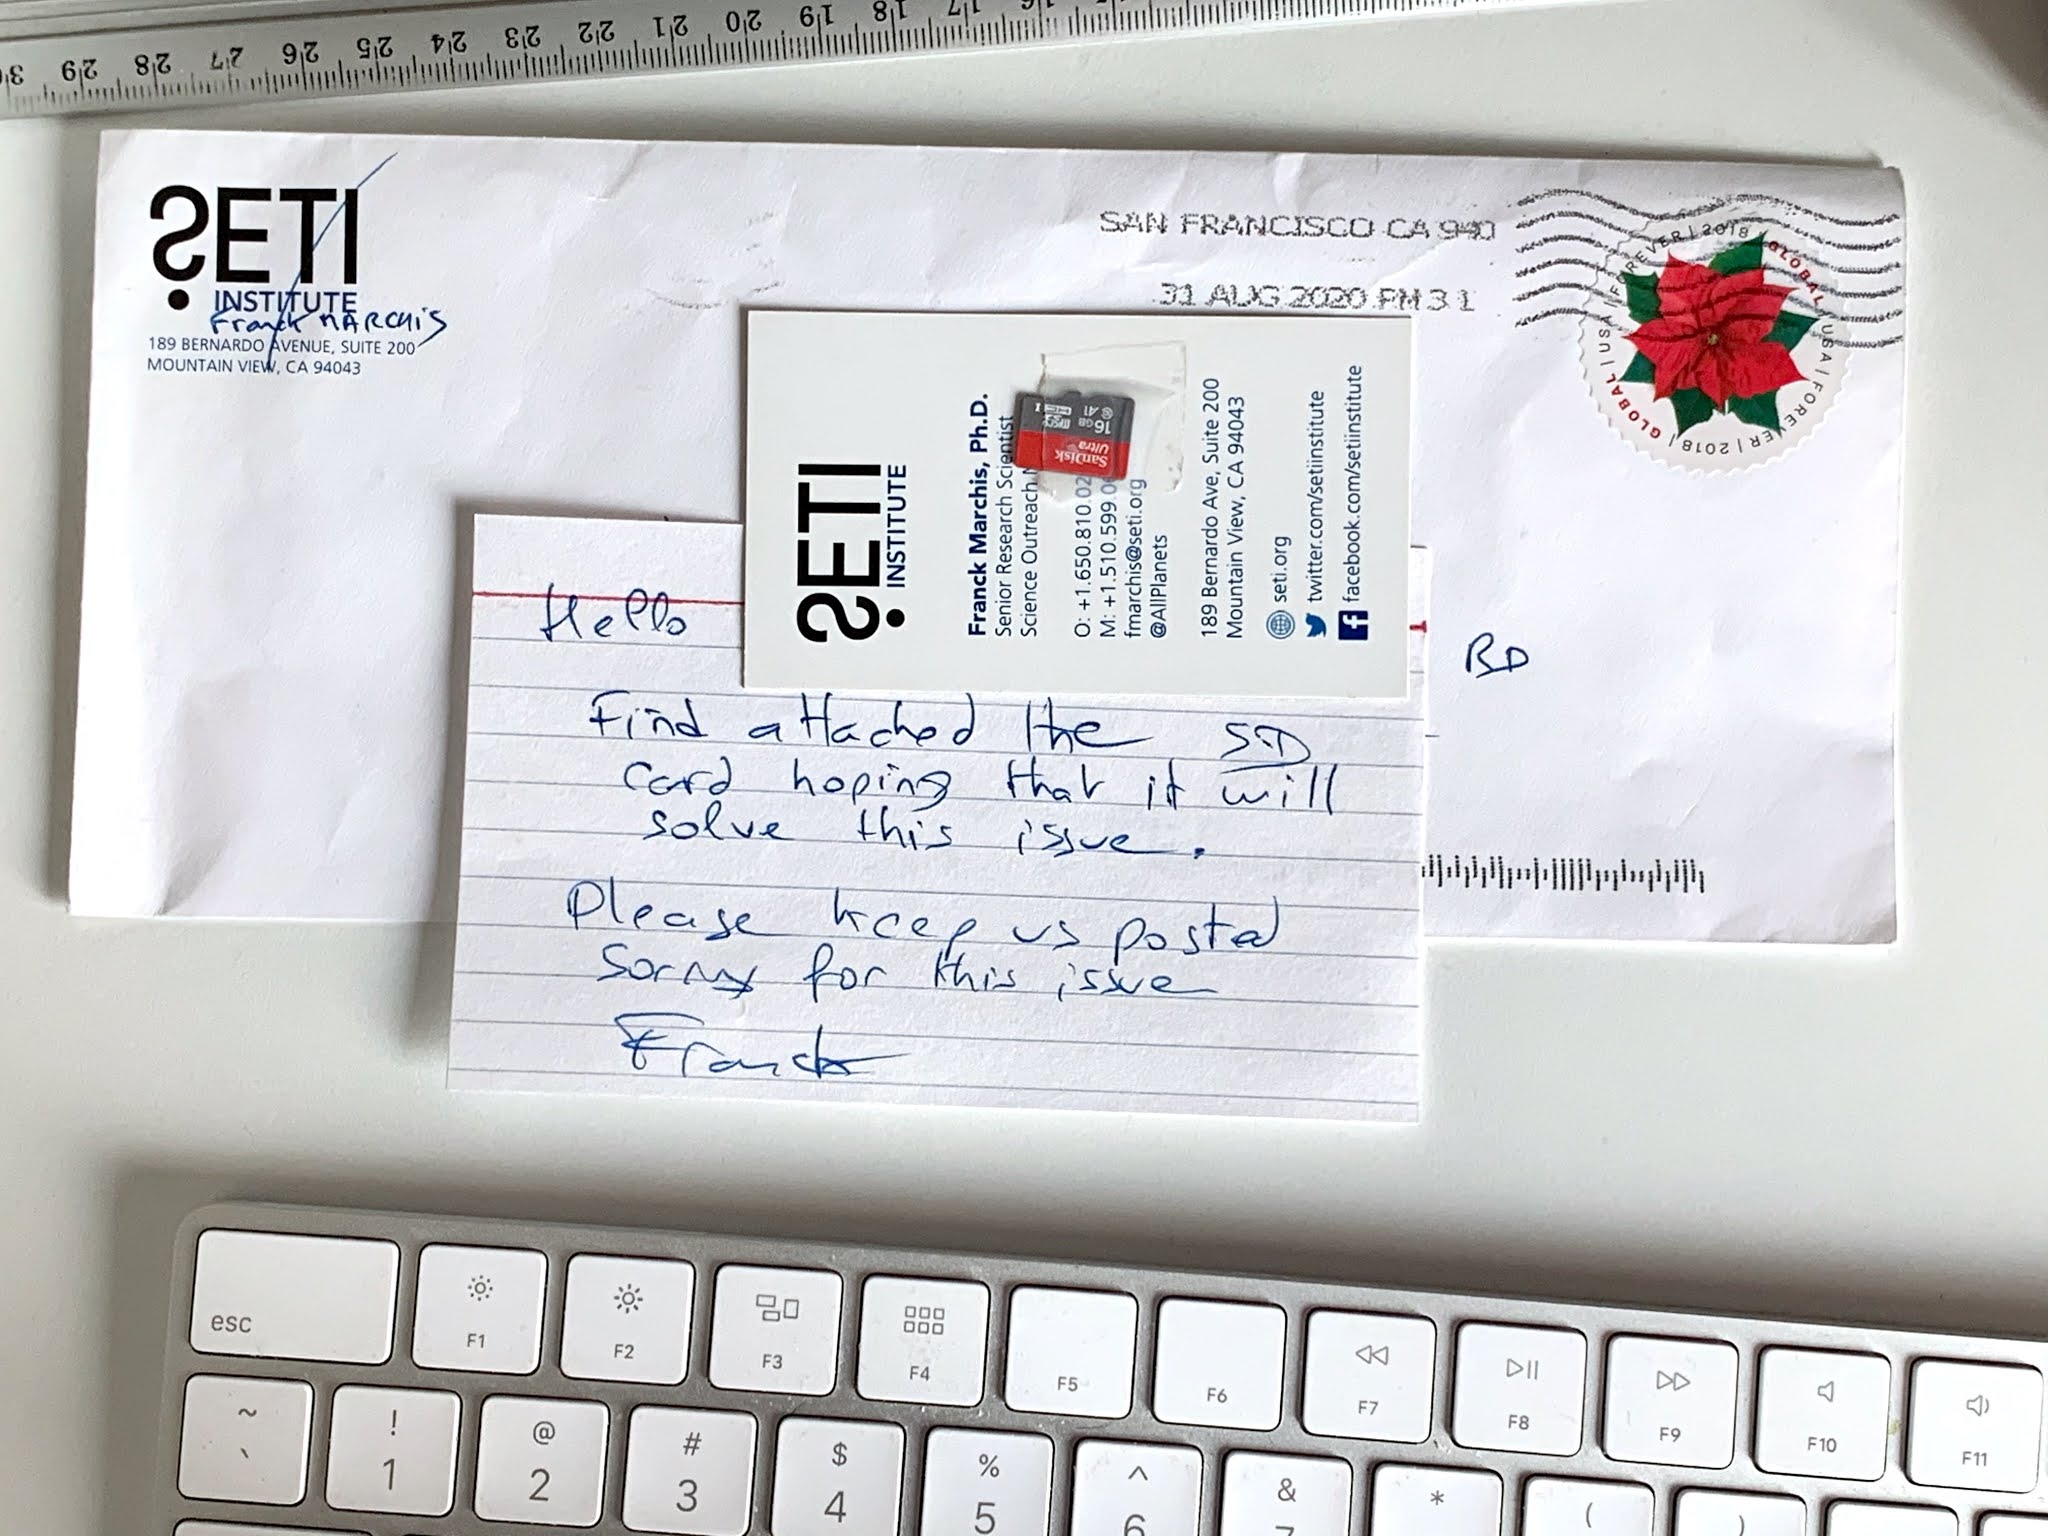 30 29 28 27 26 25 24 23 22 21 20 19 18 17 16
SETI
INSTITUTE
Franck MARCHIS
189 BERNARDO AVENUE, SUITE 200
MOUNTAIN VIEW, CA 94043
SAN FRANCISCO CA 940
31 AUG 2020 PM 3 L
GLOBAL | USA | FOREVER | 2018 | GLOBAL | USA | FOREVER | 2018 |
SETI
INSTITUTE
Franck Marchis, Ph.D.
Senior Research Scientist
Science Outreach
O: +1.650.810.02
M: +1.510.599.0
fmarchis@seti.org
@AllPlanets
189 Bernardo Ave, Suite 200
Mountain View, CA 94043
seti.org
twitter.com/setiinstitute
facebook.com/setiinstitute
SanDisk
Ultra
16 GB
micro
A1
RD
Hello
Find attached the SD
card hoping that it will
solve this issue.
Please keep us posted
Sorry for this issue
Franck
esc F1 F2 F3 F4 F5 F6 F7 F8 F9 F10 F11
~ ! @ # $ % ^ & * ( )
` 1 2 3 4 5 6 7